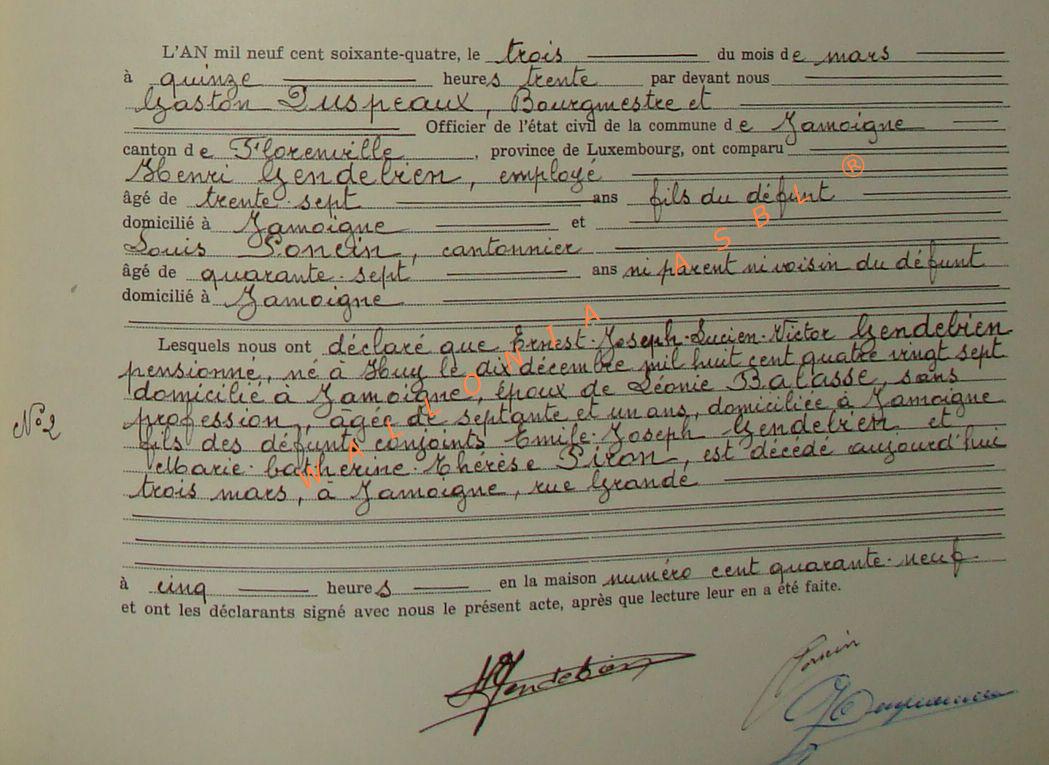 L'AN mil neuf cent soixante-quatre, le trois du mois de mars
à quinze heures trente par devant nous
Gaston Puspeaux, Bourgmestre et
Officier de l'état civil de la commune de Jamoigne
canton de Florenville, province de Luxembourg, ont comparu
Henri Gendebien, employé
âgé de trente-sept ans fils du défunt
domicilié à Jamoigne et
Louis Poncin, cantonnier
âgé de quarante-sept ans ni parent ni voisin du défunt
domicilié à Jamoigne
Lesquels nous ont déclaré que Ernest-Joseph-Lucien-Victor Gendebien
pensionné, né à Huy le dix décembre mil huit cent quatre vingt sept
domicilié à Jamoigne, époux de Léonie Balasse, sans
profession, âgée de septante et un ans, domiciliée à Jamoigne
N° 2
fils des défunts conjoints Emile-Joseph Gendebien et
Marie-Catherine-Thérèse Piron, est décédé aujourd'hui
trois mars, à Jamoigne, rue Grande
à cinq heures en la maison numéro cent quarante-neuf
et ont les déclarants signé avec nous le présent acte, après que lecture leur en a été faite.
HGendebien
Poncin
WALLONIA ASBL ®